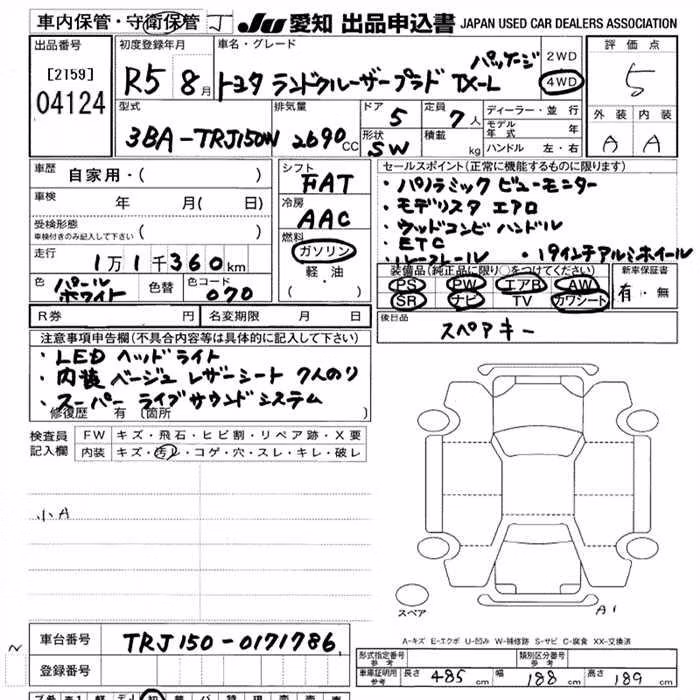 車内保管・守衛保管 J JU 愛知 出品申込書 JAPAN USED CAR DEALERS ASSOCIATION
出品番号 初度登録年月 車名・グレード 2WD 評価点
[2159] R5 8月 トヨタ ランドクルーザープラド TX-L パッケージ 4WD 5
04124 型式 排気量 ドア 5 定員 7人 ディーラー・並行 外装 内装
3BA-TRJ150W 2690cc 形状 SW 積載 kg モデル年式 年 A A
ハンドル 左・右
車歴 自家用・( ) シフト FAT セールスポイント(正常に機能するものに限ります)
車検 年 月( 日) 冷房 AAC ・パノラミック ビューモニター
受検形態 ・モデリスタ エアロ
車検付きのみ記入して下さい ( ) 燃料 ・ウッドコンビ ハンドル
走行 1万1千360km ガソリン ・ETC
軽・油 ・ルーフレール ・19インチアルミホイール
色 パールホワイト 色替 色コード 070 ( ・ ) 装備品(純正品に限り○をつけてください) 新車保証書
PS PW エアB AW 有・無
SR ナビ TV カワシート
R券 円 名変期限 月 日 後日品
スペアキー
注意事項申告欄(不具合内容等は具体的に記入して下さい)
・LED ヘッドライト
・内装 ベージュ レザーシート 7人のり
・スーパー ライブサウンドシステム
修復歴 有 〔箇所 〕
検査員 FW キズ・飛石・ヒビ割・リペア跡・X要
記入欄 内装 キズ・汚レ・コゲ・穴・スレ・キレ・破レ
小A
スペア A1
A-キズ E-エクボ U-凹み W-補修跡 S-サビ C-腐食 XX-交換済
車台番号 TRJ150-0171786
登録番号
形式指定番号 参考 類別区分番号 参考
車庫証明用 参考 長さ 485cm 幅 188cm 高さ 189cm